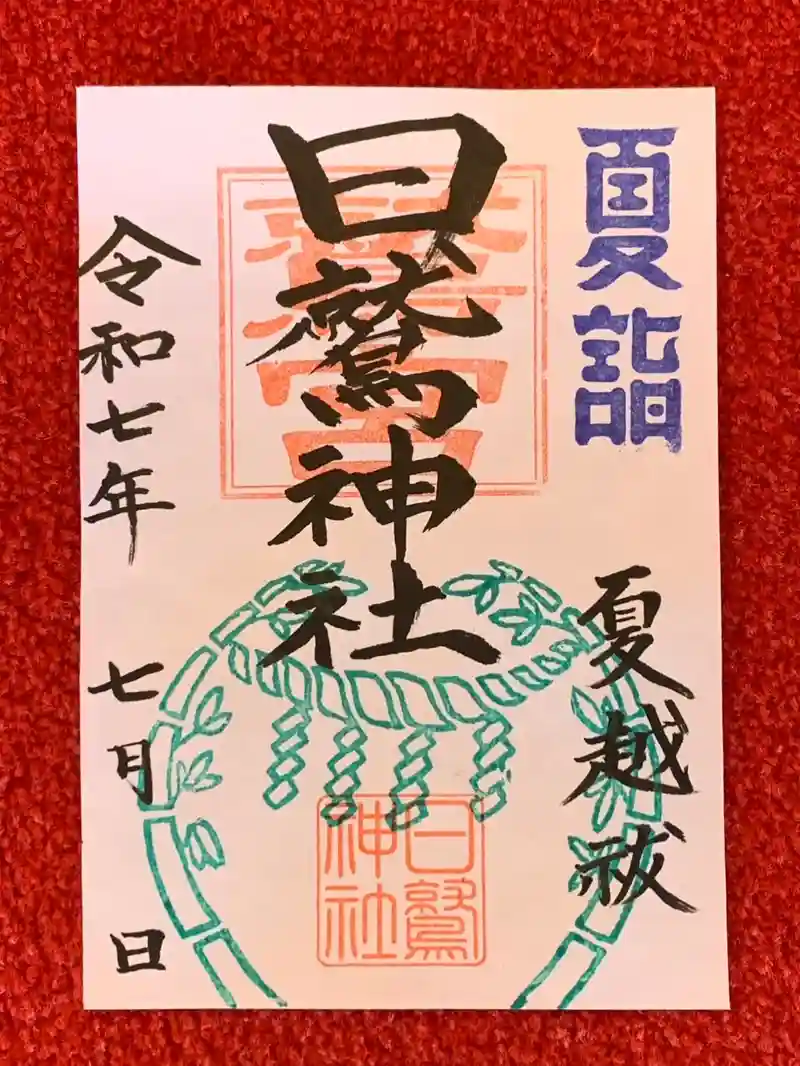 夏詣
夏越祓
日鷲神社
令和七年 七月 日
日鷲
神社